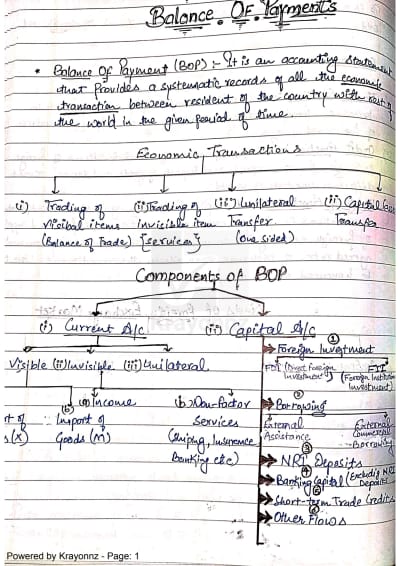 Balance Of Payments
* Balance Of Payment (BOP) :- It is an accounting statement
that Provides a systematic records of all the economic
transaction between resident of the country with rest of
the world in the given period of time.
Economic Transactions
(i) Trading of (ii) Trading of (iii) Unilateral (iv) Capital
visibal items invisible item Transfer Transfer
(Balance of Trade) [services] (one sided)
Components of BOP
(i) Current A/c (ii) Capital A/c
① Foreign Investment
Visible (ii) Invisible (iii) Unilateral
FDI (Direct Foreign Investment) FII (Foreign Institution Investment)
(a) Income (b) Non-Factor
② Borrowing
Import of Services
External Assistance External Commercial Borrowing
(X) Goods (M) (Shiping, Insurence
Banking etc)
③ NRI Deposits
④ Banking Capital (Excluding NRI Deposits
⑤ Short-term Trade Credits
⑥ Other Flows
Powered by Krayonnz - Page: 1